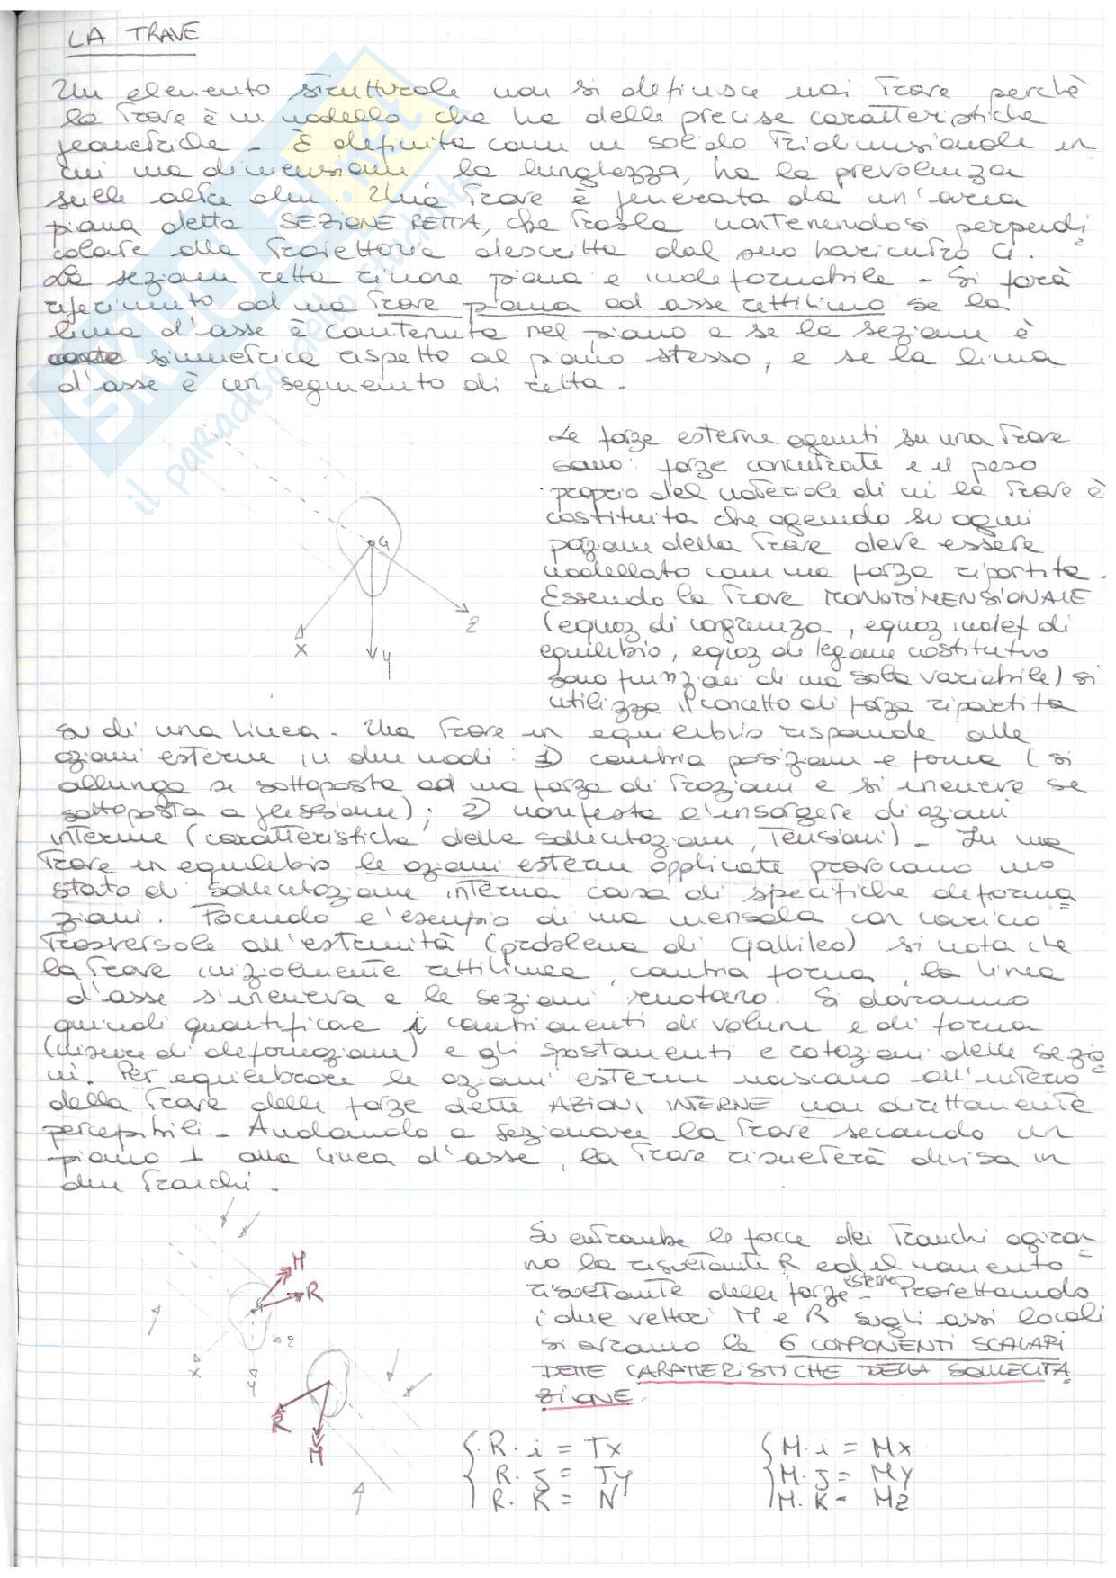 LA TRAVE
Un elemento strutturale non si definisce mai trave perchè
la trave è un modello che ha delle precise caratteristiche
geometriche - È definita come un solido tridimensionale in
cui una dimensione, la lunghezza, ha la prevalenza
sulle altre due. Una trave è generata da un'area
piana detta SEZIONE RETTA, che trasla mantenendosi perpendi
colare alla traiettoria descritta dal suo baricentro G.
La sezione retta rimane piana e indeformabile - Si farà
riferimento ad una trave piana ad asse rettilineo se la
linea d'asse è contenuta nel piano e se la sezione è
simmetrica rispetto al piano stesso, e se la linea
d'asse è un segmento di retta.
Le forze esterne agenti su una trave
sono: forze concentrate e il peso
proprio del materiale di cui la trave è
costituita che agendo su ogni
porzione della trave deve essere
modellato come una forza ripartita.
Essendo la trave MONODIMENSIONALE
(equaz di congruenza, equaz indef di
equilibrio, equaz di legame costitutivo
sono funzioni di una sola variabile) si
utilizza il concetto di forza ripartita
G
X
Y
Z
su di una linea. Una trave in equilibrio risponde alle
azioni esterne in due modi: 1) cambia posizione e forma (si
allunga se sottoposta ad una forza di trazione e si inflette se
sottoposta a flessione); 2) manifesta l'insorgere di azioni
interne (caratteristiche della sollecitazione, tensioni) - In una
trave in equilibrio le azioni esterne applicate provocano uno
stato di sollecitazione interna causa di specifiche deforma
zioni. Facendo l'esempio di una mensola con carico
trasversale all'estremità (problema di Galileo) si nota che
la trave inizialmente rettilinea, cambia forma, la linea
d'asse s'incurva e le sezioni ruotano. Si dovranno
quindi quantificare i cambiamenti di volume e di forma
(misure di deformazione) e gli spostamenti e rotazioni delle sezio
ni. Per equilibrare le azioni esterne nascono all'interno
della trave delle forze dette AZIONI INTERNE non direttamente
percepibili - Andando a sezionare la trave secondo un
piano ⊥ alla linea d'asse, la trave risulterà divisa in
due tronchi.
Su entrambe le facce dei tronchi agiran
no la risultante R ed il momento
risultante delle forze esterne - Proiettando
i due vettori M e R sugli assi locali
si avranno le 6 COMPONENTI SCALARI
DETTE CARATTERISTICHE DELLA SOLLECITA
ZIONE.
M
R
Z
X
Y
R
M
R · i = Tx
R · j = Ty
R · K = N
M · i = Mx
M · j = My
M · K = Mz